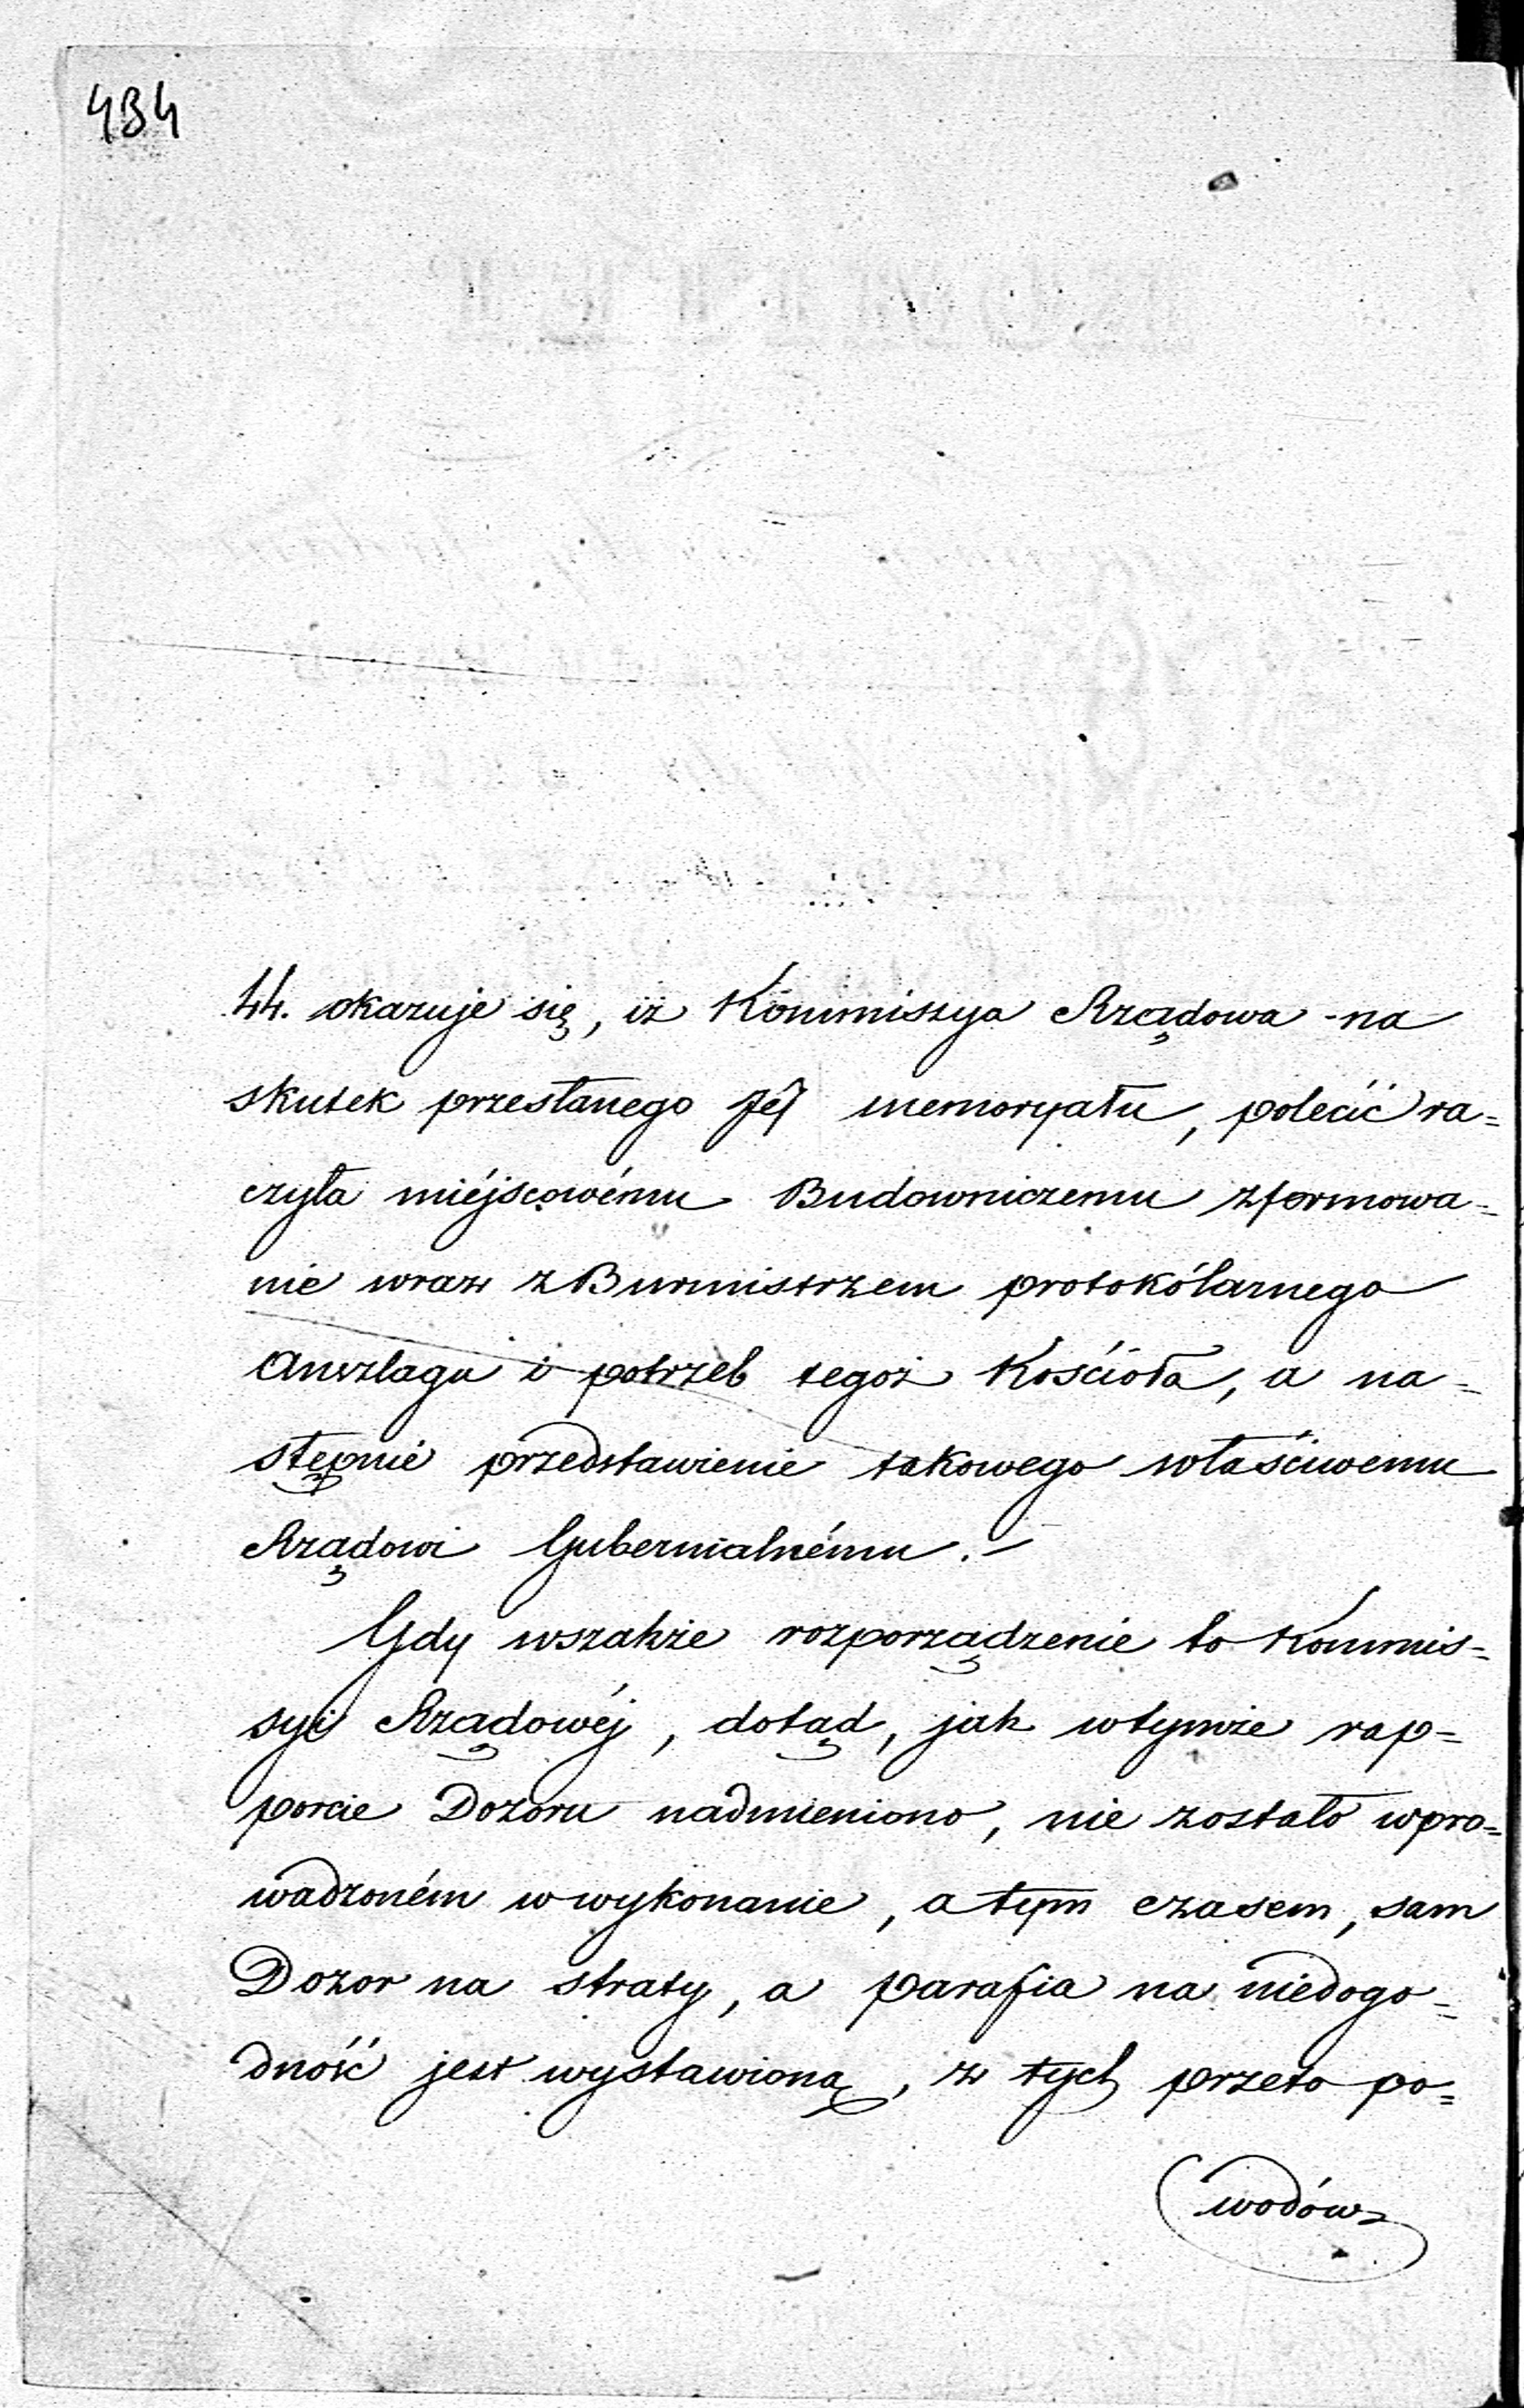 434
44. okazuje się, iż Kommissya Rządowa na
skutek przesłanego Jéj memoryału, polecić ra=
czyła miéjscowému Budowniczemu zformowa=
nie wraz z Burmistrzem protokólarnego
Anszlagu i potrzeb tegoż Kościoła, a na=
stępnie przedstawienie takowego właściwemu
Rządowi Gubernialnému.
Gdy wszakże rozporządzenie to Kommis=
syi Rządowéj, dotąd, jak w tymże rap=
porcie Dozoru nadmieniono, nie zostało wpro=
wadzoném w wykonanie, a tym czasem, sam
Dozor na straty, a parafia na niedogo=
dność jest wystawioną, z tych przeto po=
wodów